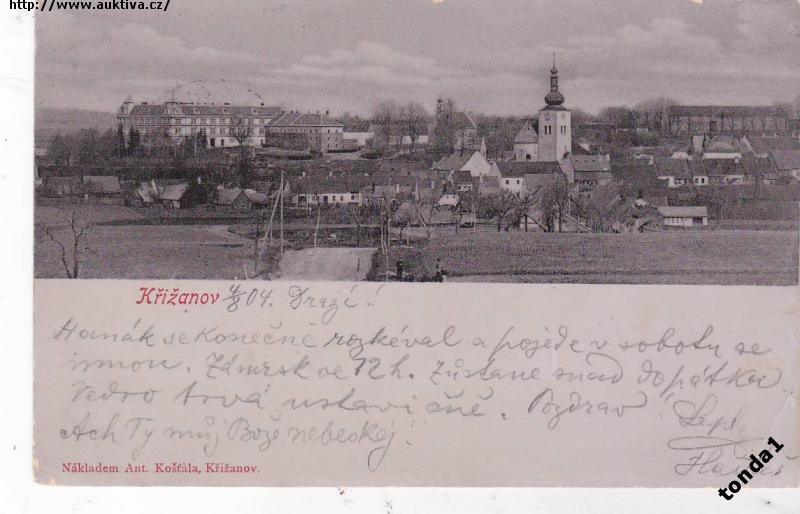 http://www.auktiva.cz/
Křižanov 4/8 04. Drazí!
Hanák se konečně rozkéval a pojede v sobotu se
mnou. Zámrsk ve 12 h. Zůstane snad do pátku.
Vedro trvá ustavičně. Pozdrav!
Ach Ty můj Bože nebeskej!
Nákladem Ant. Košťála, Křižanov.
tonda1